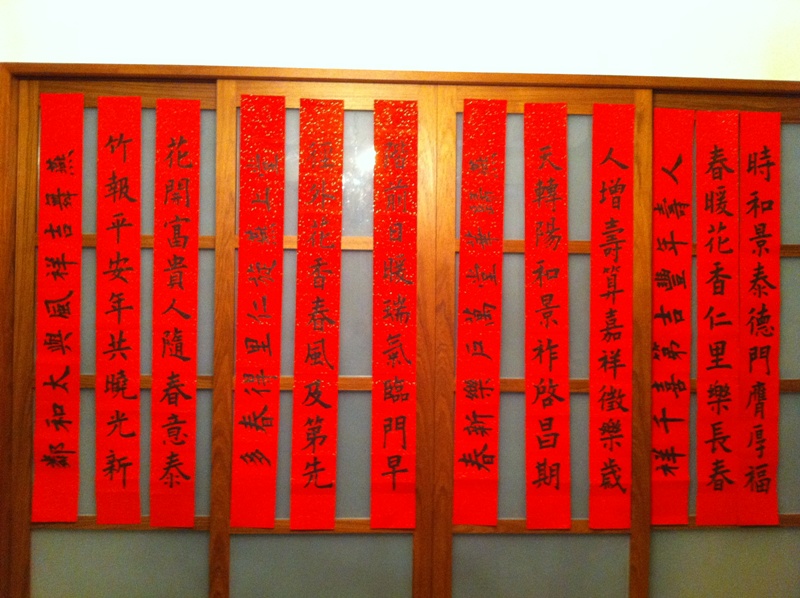 時和景泰德門膺厚福
春暖花香仁里樂長春
人壽年豐吉第喜千祥
人增壽算嘉祥徵樂歲
天轉陽和景祚啓昌期
華堂萬戶樂新春
階前日暖瑞氣臨門早
外花香春風及第先
堂上仁里得春多
花開富貴人隨春意泰
竹報平安年共曉光新
燕尋吉祥風與太和鄰